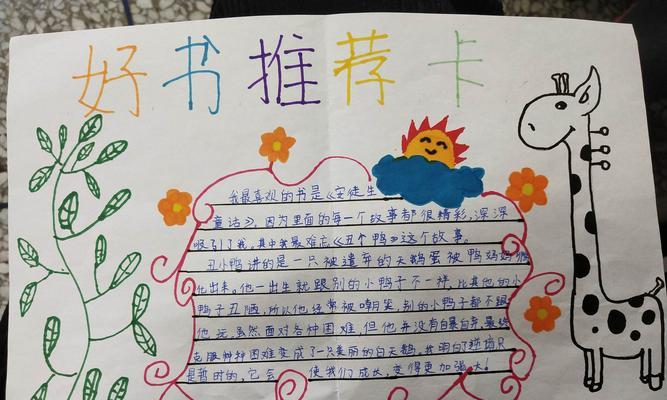 好书推荐卡
我最喜欢的书是《安徒生
童话》,因为里面的每一个故事都很精彩,深深
吸引了我,其中我最难忘《丑个鸭》这个故事。
丑小鸭讲的是一只被遗弃的天鹅蛋被鸭妈妈
化出来。他一出生就跟别的小鸭子不一样,比其他的小
鸭子丑陋,所以他经常被嘲笑,别的小鸭子都不跟
他玩,虽然面对各种困难,但他并没有自暴自弃,最终
克服种种困难变成了一只美丽的白天鹅。我明白了
是暂时的,它会 使我们成长,变得更加强大!